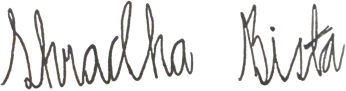 Shradha Bista